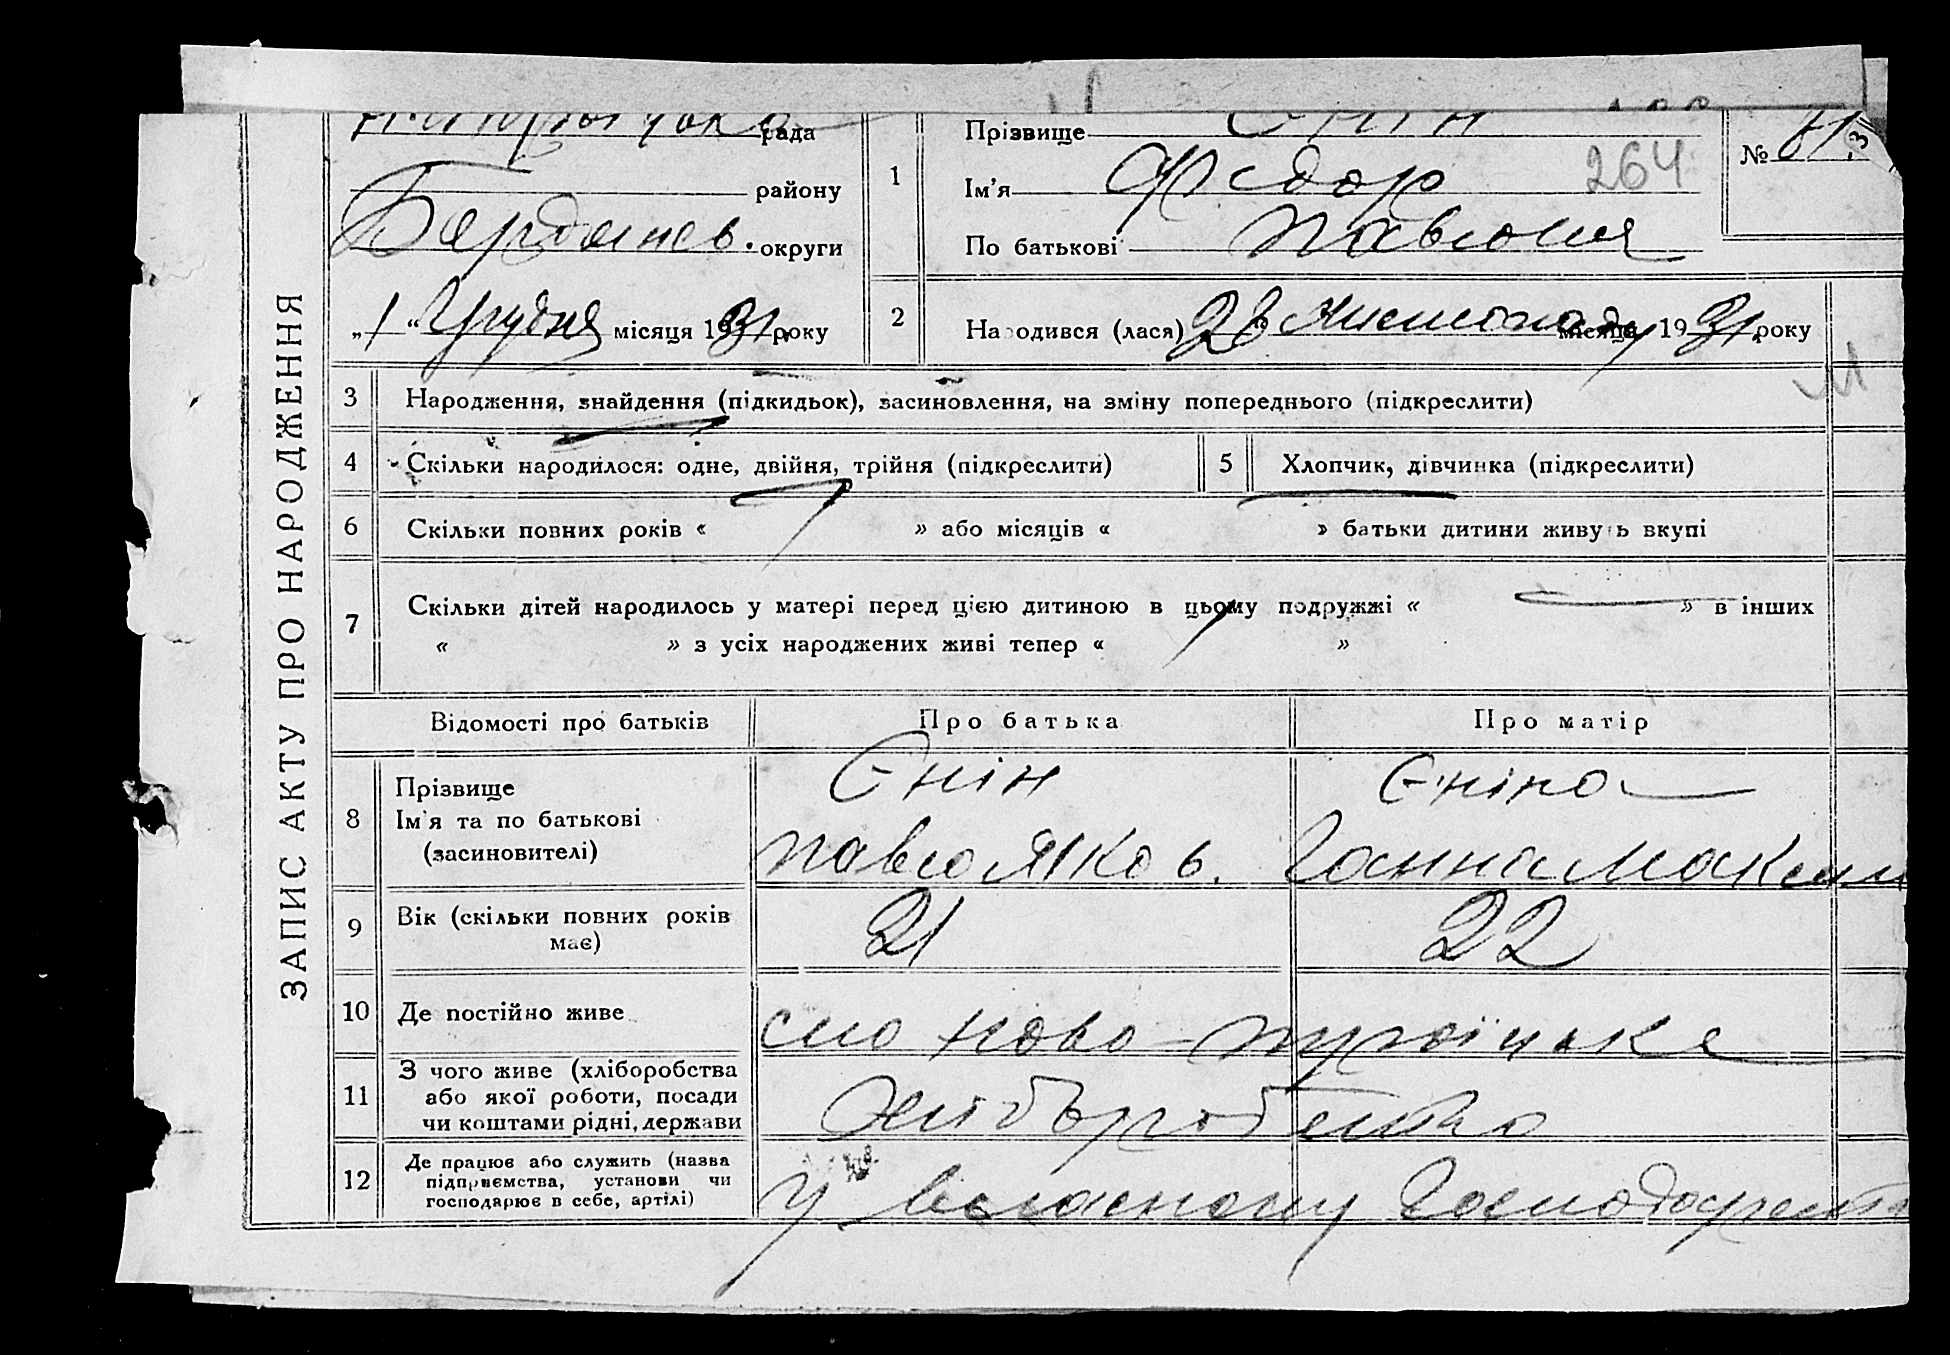 ЗАПИС АКТУ ПРО НАРОДЖЕННЯ
рада
району
Бердянсв. округи
„1“ Грудня місяця 1931. року
1
Прізвище Єнін
Ім'я Федор
264
По батькові Павлович
№ 61
2
Народився (лася) 28 Листопаду місяця 1931. року
3
Народження, знайдення (підкидьок), засиновлення, на зміну попереднього (підкреслити)
4
Скільки народилося: одне, двійня, трійня (підкреслити)
5
Хлопчик, дівчинка (підкреслити)
6
Скільки повних років « » або місяців « » батьки дитини живуть вкупі
7
Скільки дітей народилось у матері перед цією дитиною в цьому подружжі « » в інших
« » з усіх народжених живі тепер « »
Відомості про батьків
Про батька
Про матір
8
Прізвище
Ім'я та по батькові
(засиновителі)
Єнін
Павло Яков.
Єніна
Ганна Максим
9
Вік (скільки повних років
має)
21
22
10
Де постійно живе
село Ново-Троїцьке
11
З чого живе (хліборобства
або якої роботи, посади
чи коштами рідні, держави
Хліборобство
12
Де працює або служить (назва
підприємства, установи чи
господарює в себе, артілі)
у власному господарстві